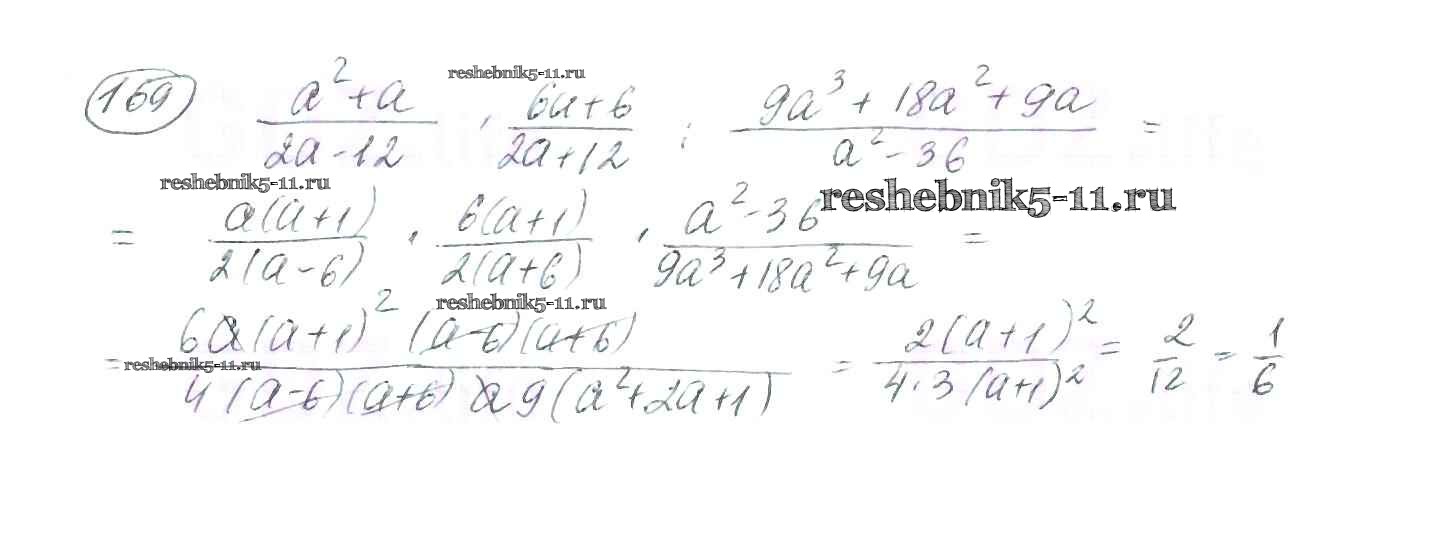 169 (a² + a)/(2a - 12) · (6a + 6)/(2a + 12) : (9a³ + 18a² + 9a)/(a² - 36) =
reshebnik5-11.ru
= a(a+1)/2(a-6) · 6(a+1)/2(a+6) · (a² - 36)/(9a³ + 18a² + 9a) =
reshebnik5-11.ru
reshebnik5-11.ru
= 6a(a+1)² (a-6)(a+6)/4(a-6)(a+6) a9(a² + 2a + 1) = 2(a+1)²/4·3(a+1)² = 2/12 = 1/6
reshebnik5-11.ru
reshebnik5-11.ru